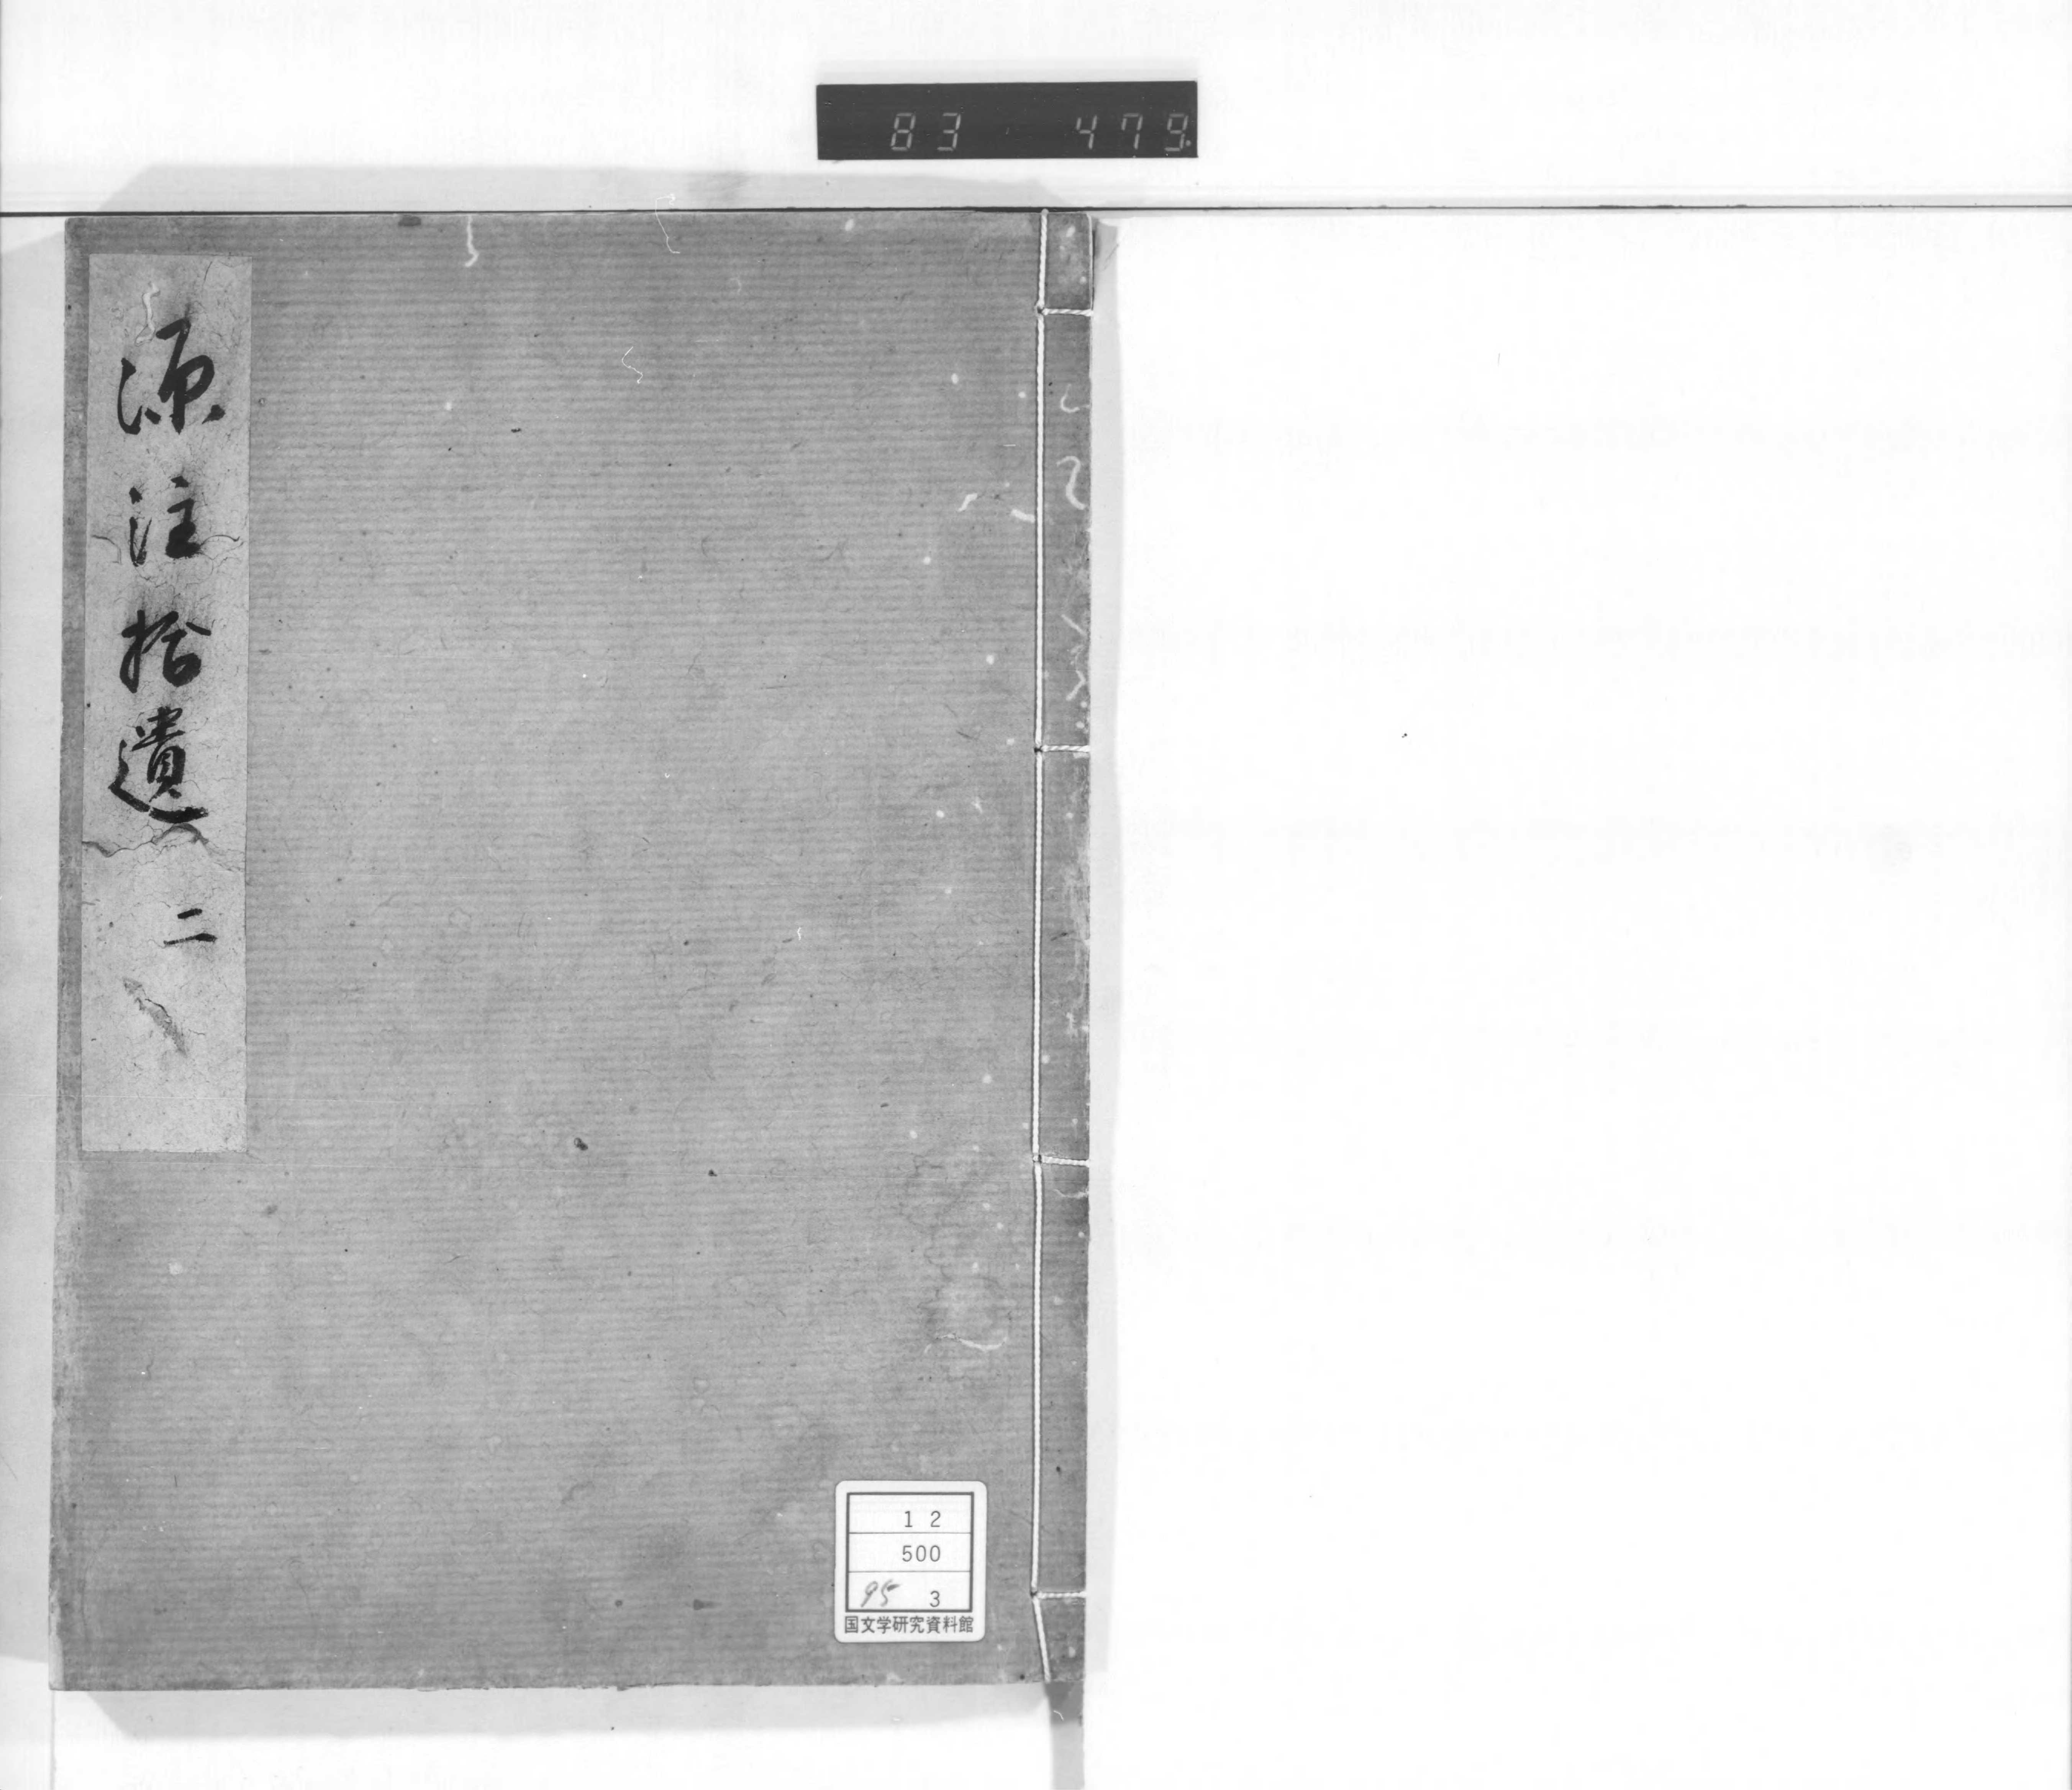 83 479
源注拾遺 二
12
500
95 3
国文学研究資料館